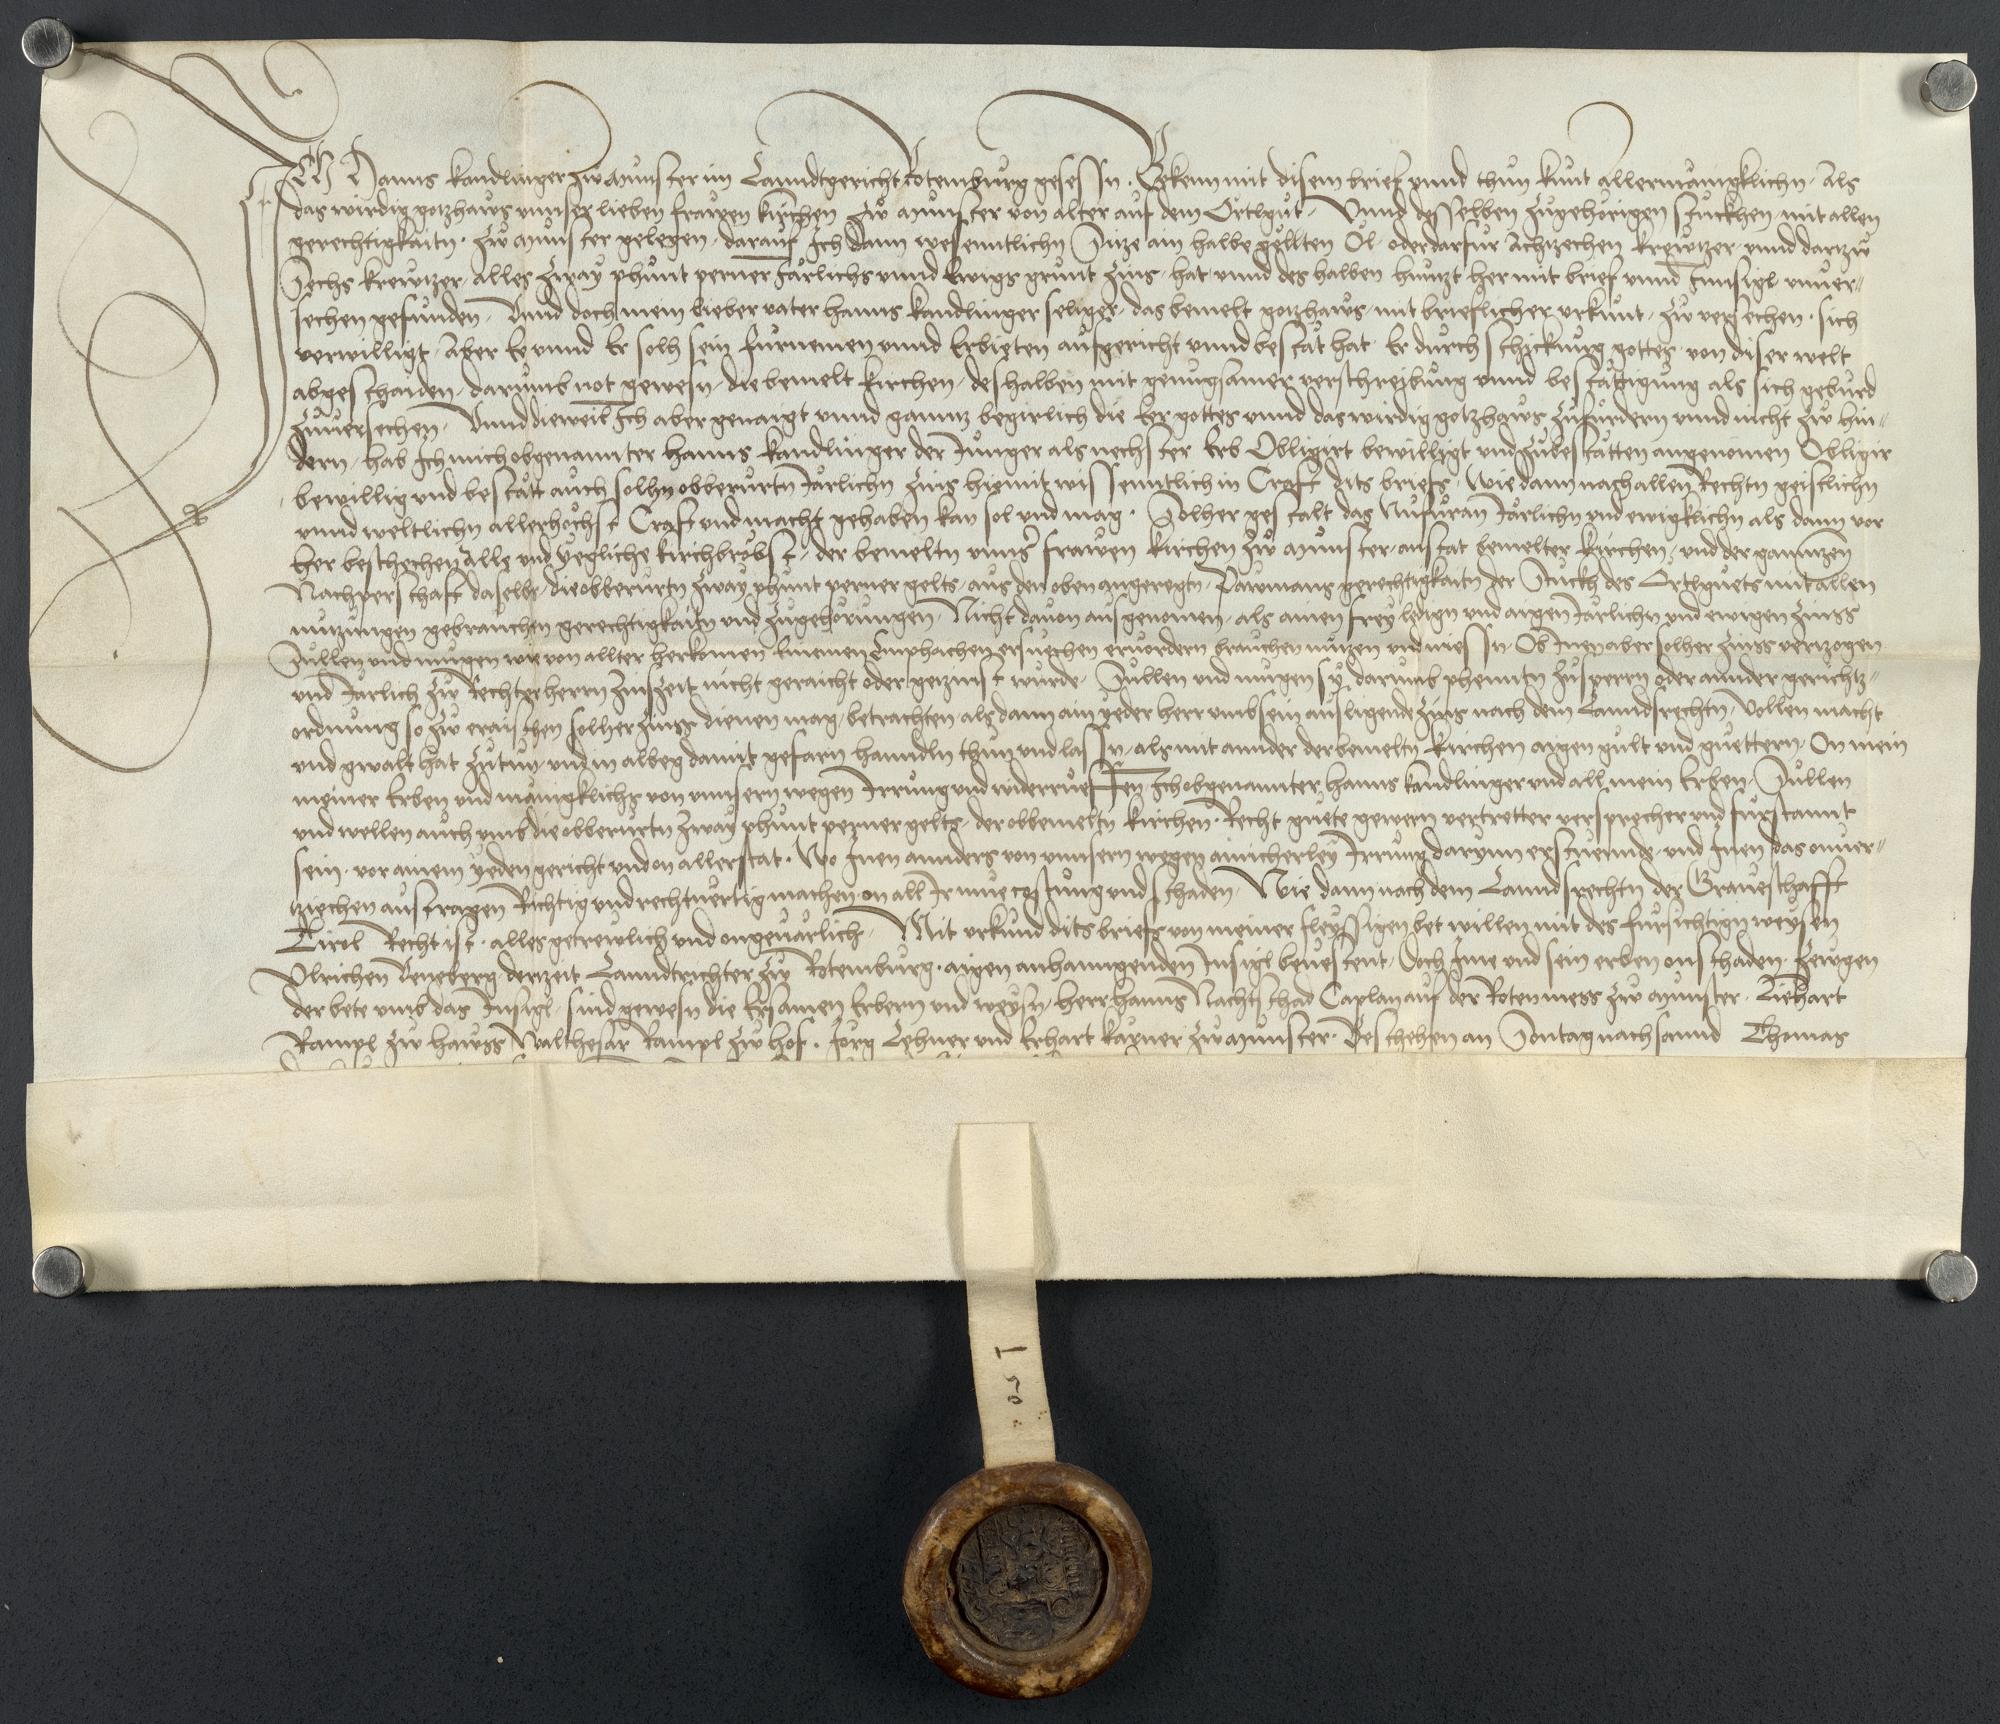 Ich Hanns Kandlinger zw Munster im Lanndtgericht Rotemburg gesessn. Bekenn mit disem brief vnnd thun kunt allermänigklichn, Als
das wirdig gotzhaws vnnser lieben frawen kirchen zw Munster von alter auf dem Örtlgut, Vnnd desselben zugehörigen stuckhen, mit allen
gerechtigkaitn, zw Munster gelegen, darauf Ich dann wesenntlichn Sitze ain halbe gellten Öl oder darfur Achtzechen krewtzer, vnnd dartzw
Sechs krewtzer, alles zway phunt perner Järlichs vnnd Ewigs grunt zins, hat vnnd des halben hunzt her mit brief vnnd Innsigl vnuer-
sechen gefunden, Vnnd doch mein lieber vater hanns Kandlinger seliger, das bemelt gotzhaws, mit brieflicher vrkunt, zw versechen, sich
verwilligt, Aber Ee vnnd Er solh sein furnemen vnnd Erbieten aufgericht vnnd bestät hat, Er durch schickung gottes, von diser welt
abgeschaiden, darumb not gewesn, die bemelt kirchen, deshalben mit genugsamer verschreibung vnnd bestättigung als sich geburd
zuuersechen, Vnnd dieweil Ich aber genaigt vnnd gannz begirlich die Eer gottes vnnd das wirdig gotzhaws zufurdern vnnd nicht zw hin-
dern, hab Ich mich obgenannter hanns Kandlinger der Junger als nechster Erb Obligirt bewilligt vnd zubestätten angenomen Obligir
bewillig vnd bestätt auch solhn obberurtn Järlichn zins hiemit wissenntlich in Craft dits briefs, Wie dann nach allen Rechtn geistlichn
vnnd weltlichn allerhöchst Craft vnd macht gehaben kan sol vnd mag. Solher gestalt das Nufuran Järlichn vnd ewigklichn als dann vor
her beschechen Alle vnd yegliche kirchbröbst, der bemeltn vnnser frawen kirchen zw Munster, anstat bemelter kirchen, vnd der ganntzen
Nachperschaft daselbs, die obberurtn zway phunt perner gelts, aus den oben angeregtn, Pawmans gerechtigkaitn der Stuckh des Örtlguets mit allen
nutzungen gebrauchen gerechtigkaitn vnd zugehörungen, Nicht dauon ausgenomen, als ainen frey ledign vnd aigen Järlichn vnd ewigen zinss
Sullen vnd mugen wie von allter herkomen Einemen Emphachen ersuechen eruordern brauchen nutzen vnd niessn, Ob Inen aber solher zinss vertzogen
vnd Järlich zw Rechter herrn Zinszeit nicht geraicht oder gezinst wurde, Sullen vnd mugen sy darumb phenntn zusperrn oder annder gerichtz-
ordnung so zw eraischen solher zinss dienen mag, betrachten, als dann ain yeder herr vmb sein ausligende zins nach dem Lanndsrechtn, Vollen macht
vnd gwalt hat zutun, vnd in albeg damit gefarn hanndln thun vnd lassn, als mit annder der bemeltn kirchen aigen gult vnd guettern, On mein
meiner Erben vnd mänigklichs von vnnsern wegen Irrung vnd widerrueffen Ich obgenannter hanns Kandlinger vnd all mein Erben, Sullen
vnd wellen auch vmb die obberurtn zway phunt perner gelts, der obbemeltn kirchen, Recht guete gewern vertretter versprecher vnd furstannt
sein, vor ainem yeden gericht vnd on aller stat. Wo Inen annders von vnnsern wegen ainicherley Irrung darynn erstuennde, vnd Inen das onuer-
ziechen austragen Richtig vnd rechtuertig machen, on all Ir mue costung vnd schaden, Wie dann nach dem Lanndsrechtn der Graueschafft
Tirol Recht ist, alles getrewlich vnd ongeuärlich, Mit vrkund dits briefs von meiner fleyssigen bet willen mit des fursichtign weysen
Vlrichen Peneberg, derzeit Lanndtrichter zw Rotemburg, aigen anhanngenden Insigl beuestent, doch Ime vnd sein erben on schaden. Zewgen
der bete vmb das Insigl, sind gewesn die Ersamen Erbern vnd weysn, herr hanns Nachtschad Caplan auf der Rotenmess zw Munster, Liebhart
Rampl zw hawss Walthesar Rampl zw hof, Jorg Lehner vnd Erhart karner zw Munster. Beschehen an Sontag nach sannd Thomas